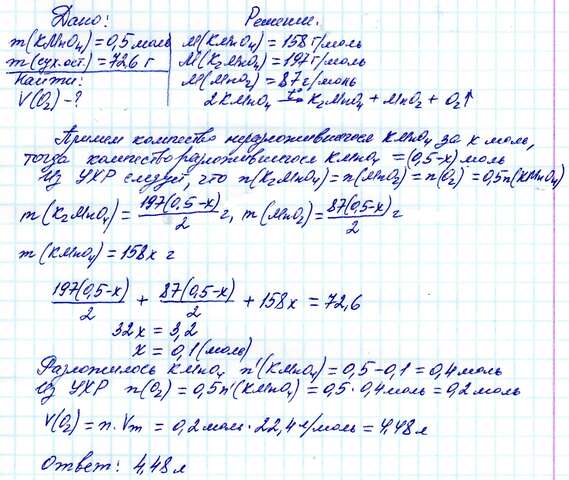 Дано:
m(KMnO₄) = 0,5 моль
m(сух.ост.) = 72,6 г
Найти:
V(O₂) - ?
Решение.
M(KMnO₄) = 158 г/моль
M(K₂MnO₄) = 197 г/моль
M(MnO₂) = 87 г/моль
2KMnO₄ t°→ K₂MnO₄ + MnO₂ + O₂↑
Примем количество неразложившегося KMnO₄ за x моль,
тогда количество разложившегося KMnO₄ = (0,5-x) моль
Из УХР следует, что n(K₂MnO₄) = n(MnO₂) = n(O₂) = 0,5n(KMnO₄)
m(K₂MnO₄) = 197(0,5-x)/2 г, m(MnO₂) = 87(0,5-x)/2 г
m(KMnO₄) = 158x г
197(0,5-x)/2 + 87(0,5-x)/2 + 158x = 72,6
32x = 3,2
x = 0,1 (моль)
Разложилось KMnO₄ n'(KMnO₄) = 0,5-0,1 = 0,4 моль
Из УХР n(O₂) = 0,5n'(KMnO₄) = 0,5·0,4 моль = 0,2 моль
V(O₂) = n·Vm = 0,2 моль·22,4 л/моль = 4,48 л
Ответ: 4,48 л